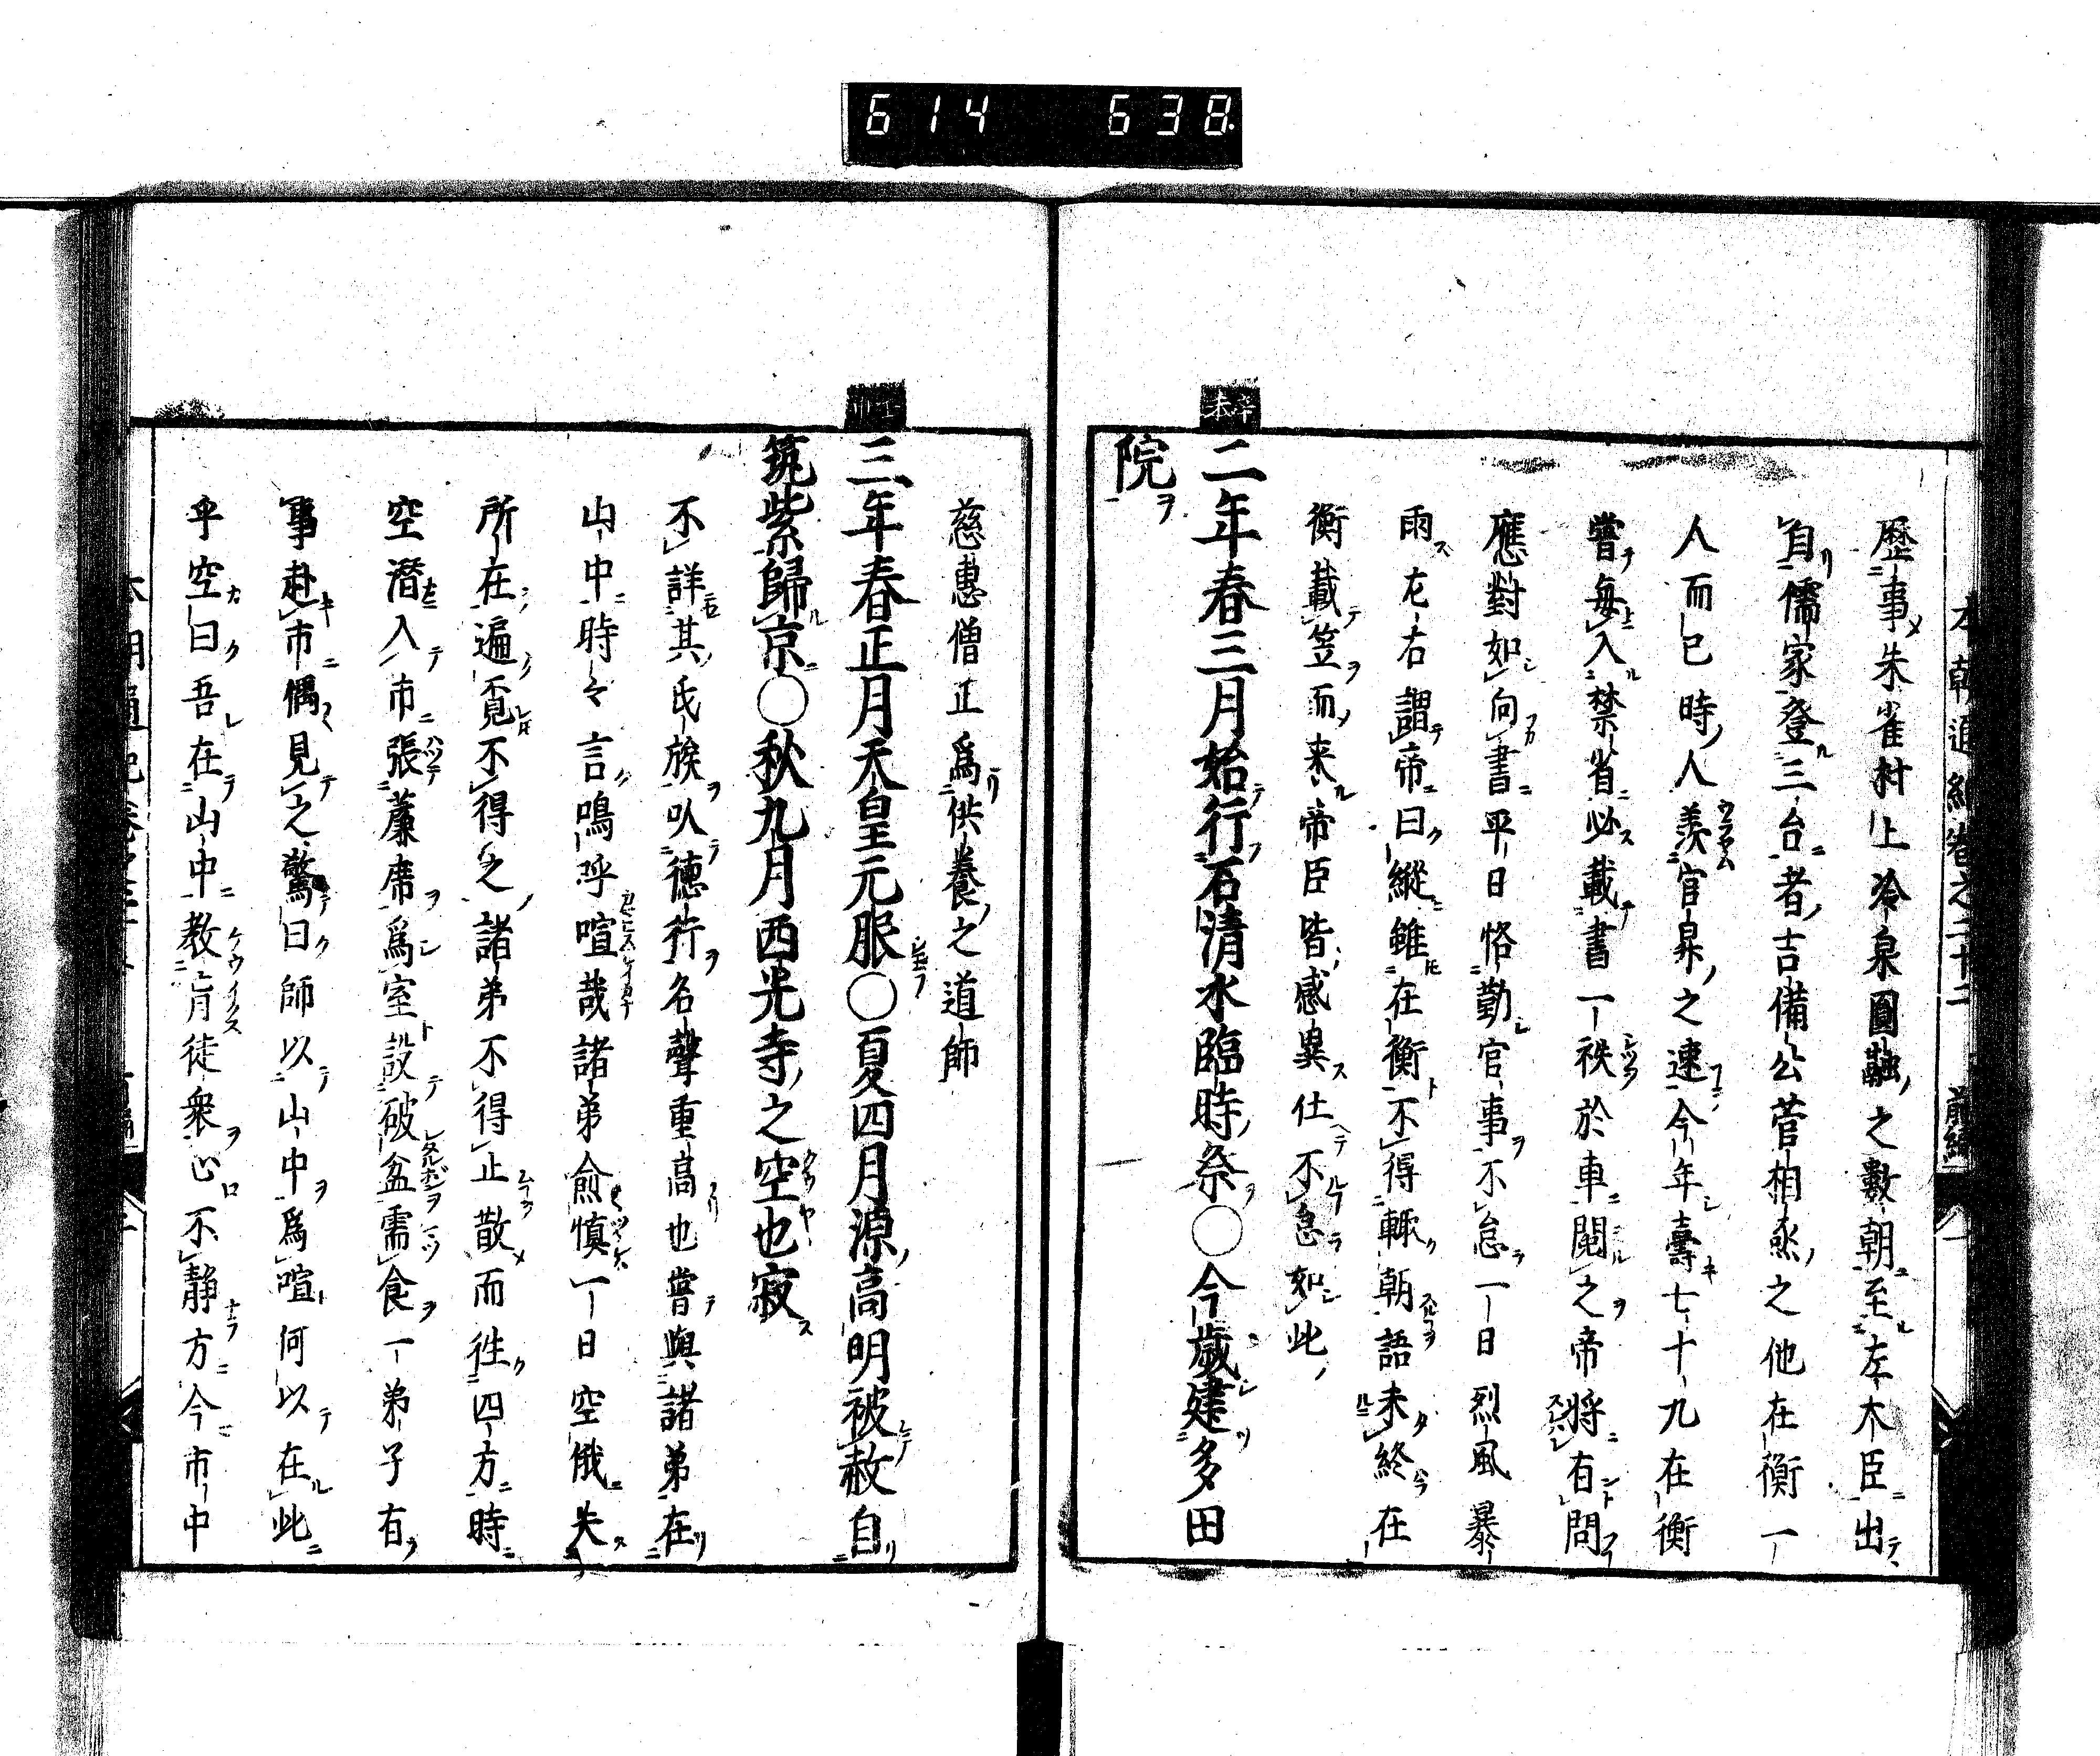 614 638
本朝通紀卷之二十二 前編
歷事朱雀村上冷泉圓融之數朝至左大臣出
自儒家登三台者吉備公菅相烝之他在衡一
人而已時人羨官昇之速今年壽七十九在衡
嘗每入禁省必載書一袟於車閱之帝將有問
應對如向書平日恪勤官事不怠一日烈風暴
雨左右謂帝曰縱雖在衡不得輙朝語未終在
衡載笠而来帝臣皆感異仕不怠如此
辛未
二年春三月始行石清水臨時祭○今歲建多田
院
慈惠僧正爲供養之道師
三年春正月天皇元服○夏四月源高明被赦自
筑紫歸京○秋九月西光寺之空也寂
不詳其氏族以德行名聲重高也嘗與諸弟在
山中時々言鳴呼喧哉諸弟愈慎一日空俄失
所在遍覓不得之諸弟不得止散而徃四方時
空潛入市張薦席爲室設破盆需食一弟子有
事赴市偶見之驚曰師以山中爲喧何以在此
乎空曰吾在山中教育徒衆心不静方今市中